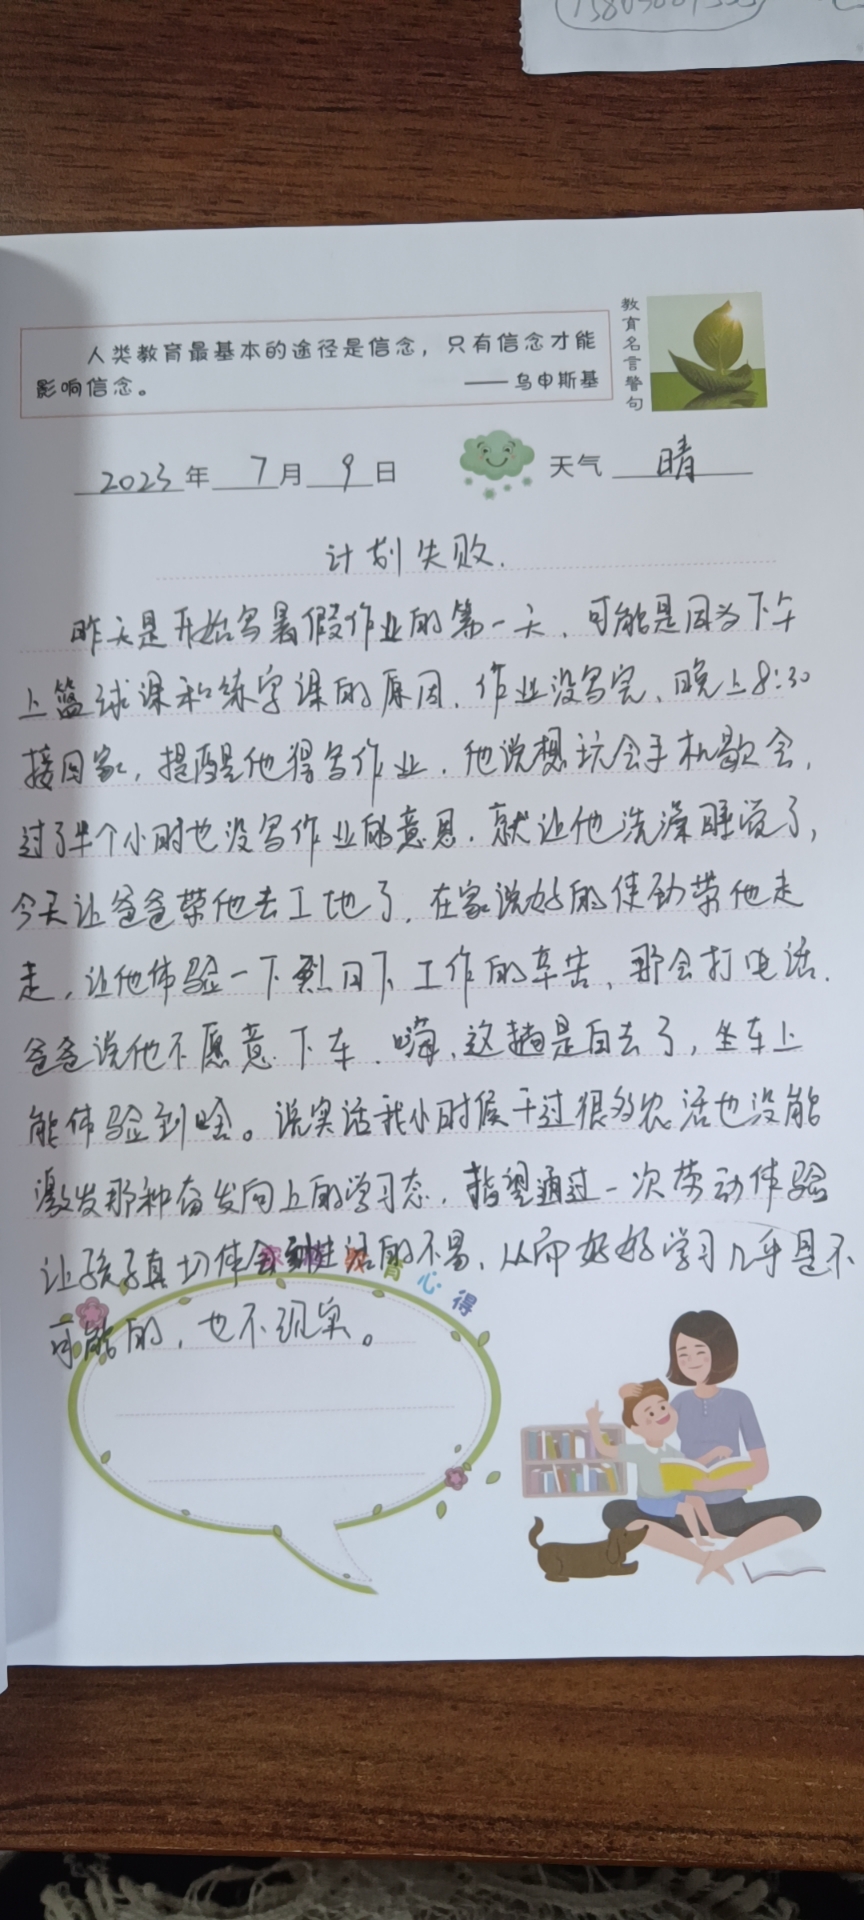 教育名言警句
人类教育最基本的途径是信念，只有信念才能
影响信念。
—— 乌申斯基
2023年 7月 9日 天气 晴
计划失败.
昨天是开始写暑假作业的第一天，可能是因为下午
上篮球课和练字课的原因，作业没写完，晚上8:30
接回家，提醒他得写作业，他说想玩会手机歇会，
过了半个小时也没写作业的意思，就让他洗澡睡觉了，
今天让爸爸带他去工地了，在家说好的使劲带他走
走，让他体验一下烈日下工作的辛苦，那会打电话，
爸爸说他不愿意下车，嗨，这趟是白去了，坐车上
能体验到啥。说实话我小时候干过很多农活也没能
激发那种奋发向上的学习态，指望通过一次劳动体验
让孩子真切体会到生活的不易，从而好好学习几乎是不
可能的，也不现实。
育心得